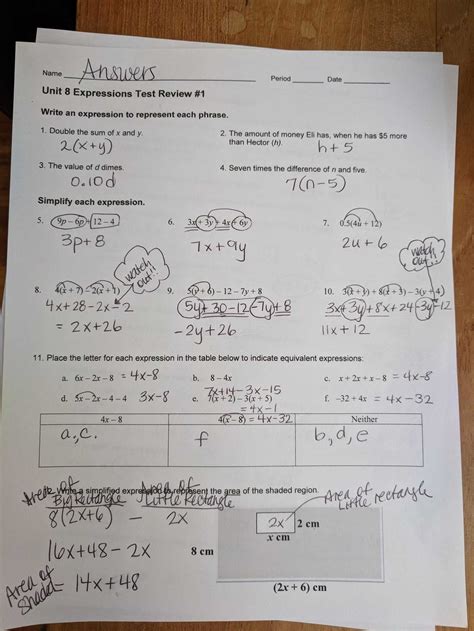 Name Answers Period Date
Unit 8 Expressions Test Review #1
Write an expression to represent each phrase.
1. Double the sum of x and y.
2(x+y)
2. The amount of money Eli has, when he has $5 more
than Hector (h).
h+5
3. The value of d dimes.
0.10d
4. Seven times the difference of n and five.
7(n-5)
Simplify each expression.
5. 9p – 6p + 12 – 4
3p+8
6. 3x + 3y + 4x + 6y
7x+9y
7. 0.5(4u + 12)
2u+6
watch out!!
watch out!!
8. 4(x + 7) – 2(x + 1)
4x+28-2x-2
= 2x+26
9. 5(y + 6) – 12 – 7y + 8
5y+30-12-7y+8
-2y+26
10. 3(x + y) + 8(x + 3) – 3(y + 4)
3x+3y+8x+24-3y-12
11x+12
11. Place the letter for each expression in the table below to indicate equivalent expressions:
a. 6x – 2x – 8 = 4x-8
b. 8 – 4x
c. x + 2x + x – 8 = 4x-8
d. 5x – 2x – 4 – 4 3x-8
7x+14-3x-15
e. 7(x + 2) – 3(x + 5)
= 4x-1
f. –32 + 4x = 4x-32
4x – 8
4(x – 8) = 4x-32
Neither
a, c.
f
b, d, e
Write a simplified expression to represent the area of the shaded region.
Area of Big Rectangle
Area of Little Rectangle
Area of Little rectangle
8(2x+6) - 2x
2x
2 cm
x cm
16x+48-2x
8 cm
Area of
= 14x+48
(2x + 6) cm